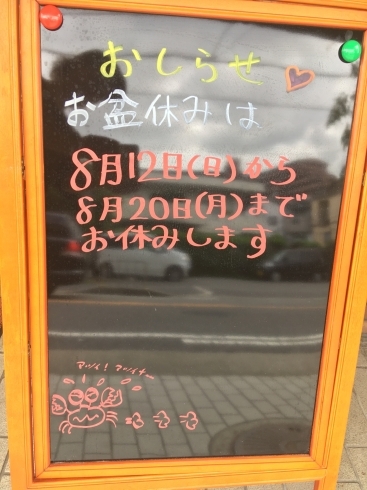 おしらせ
お盆休みは
8月12日(日)から
8月20日(月)まで
お休みします
アツイ！アツイナー